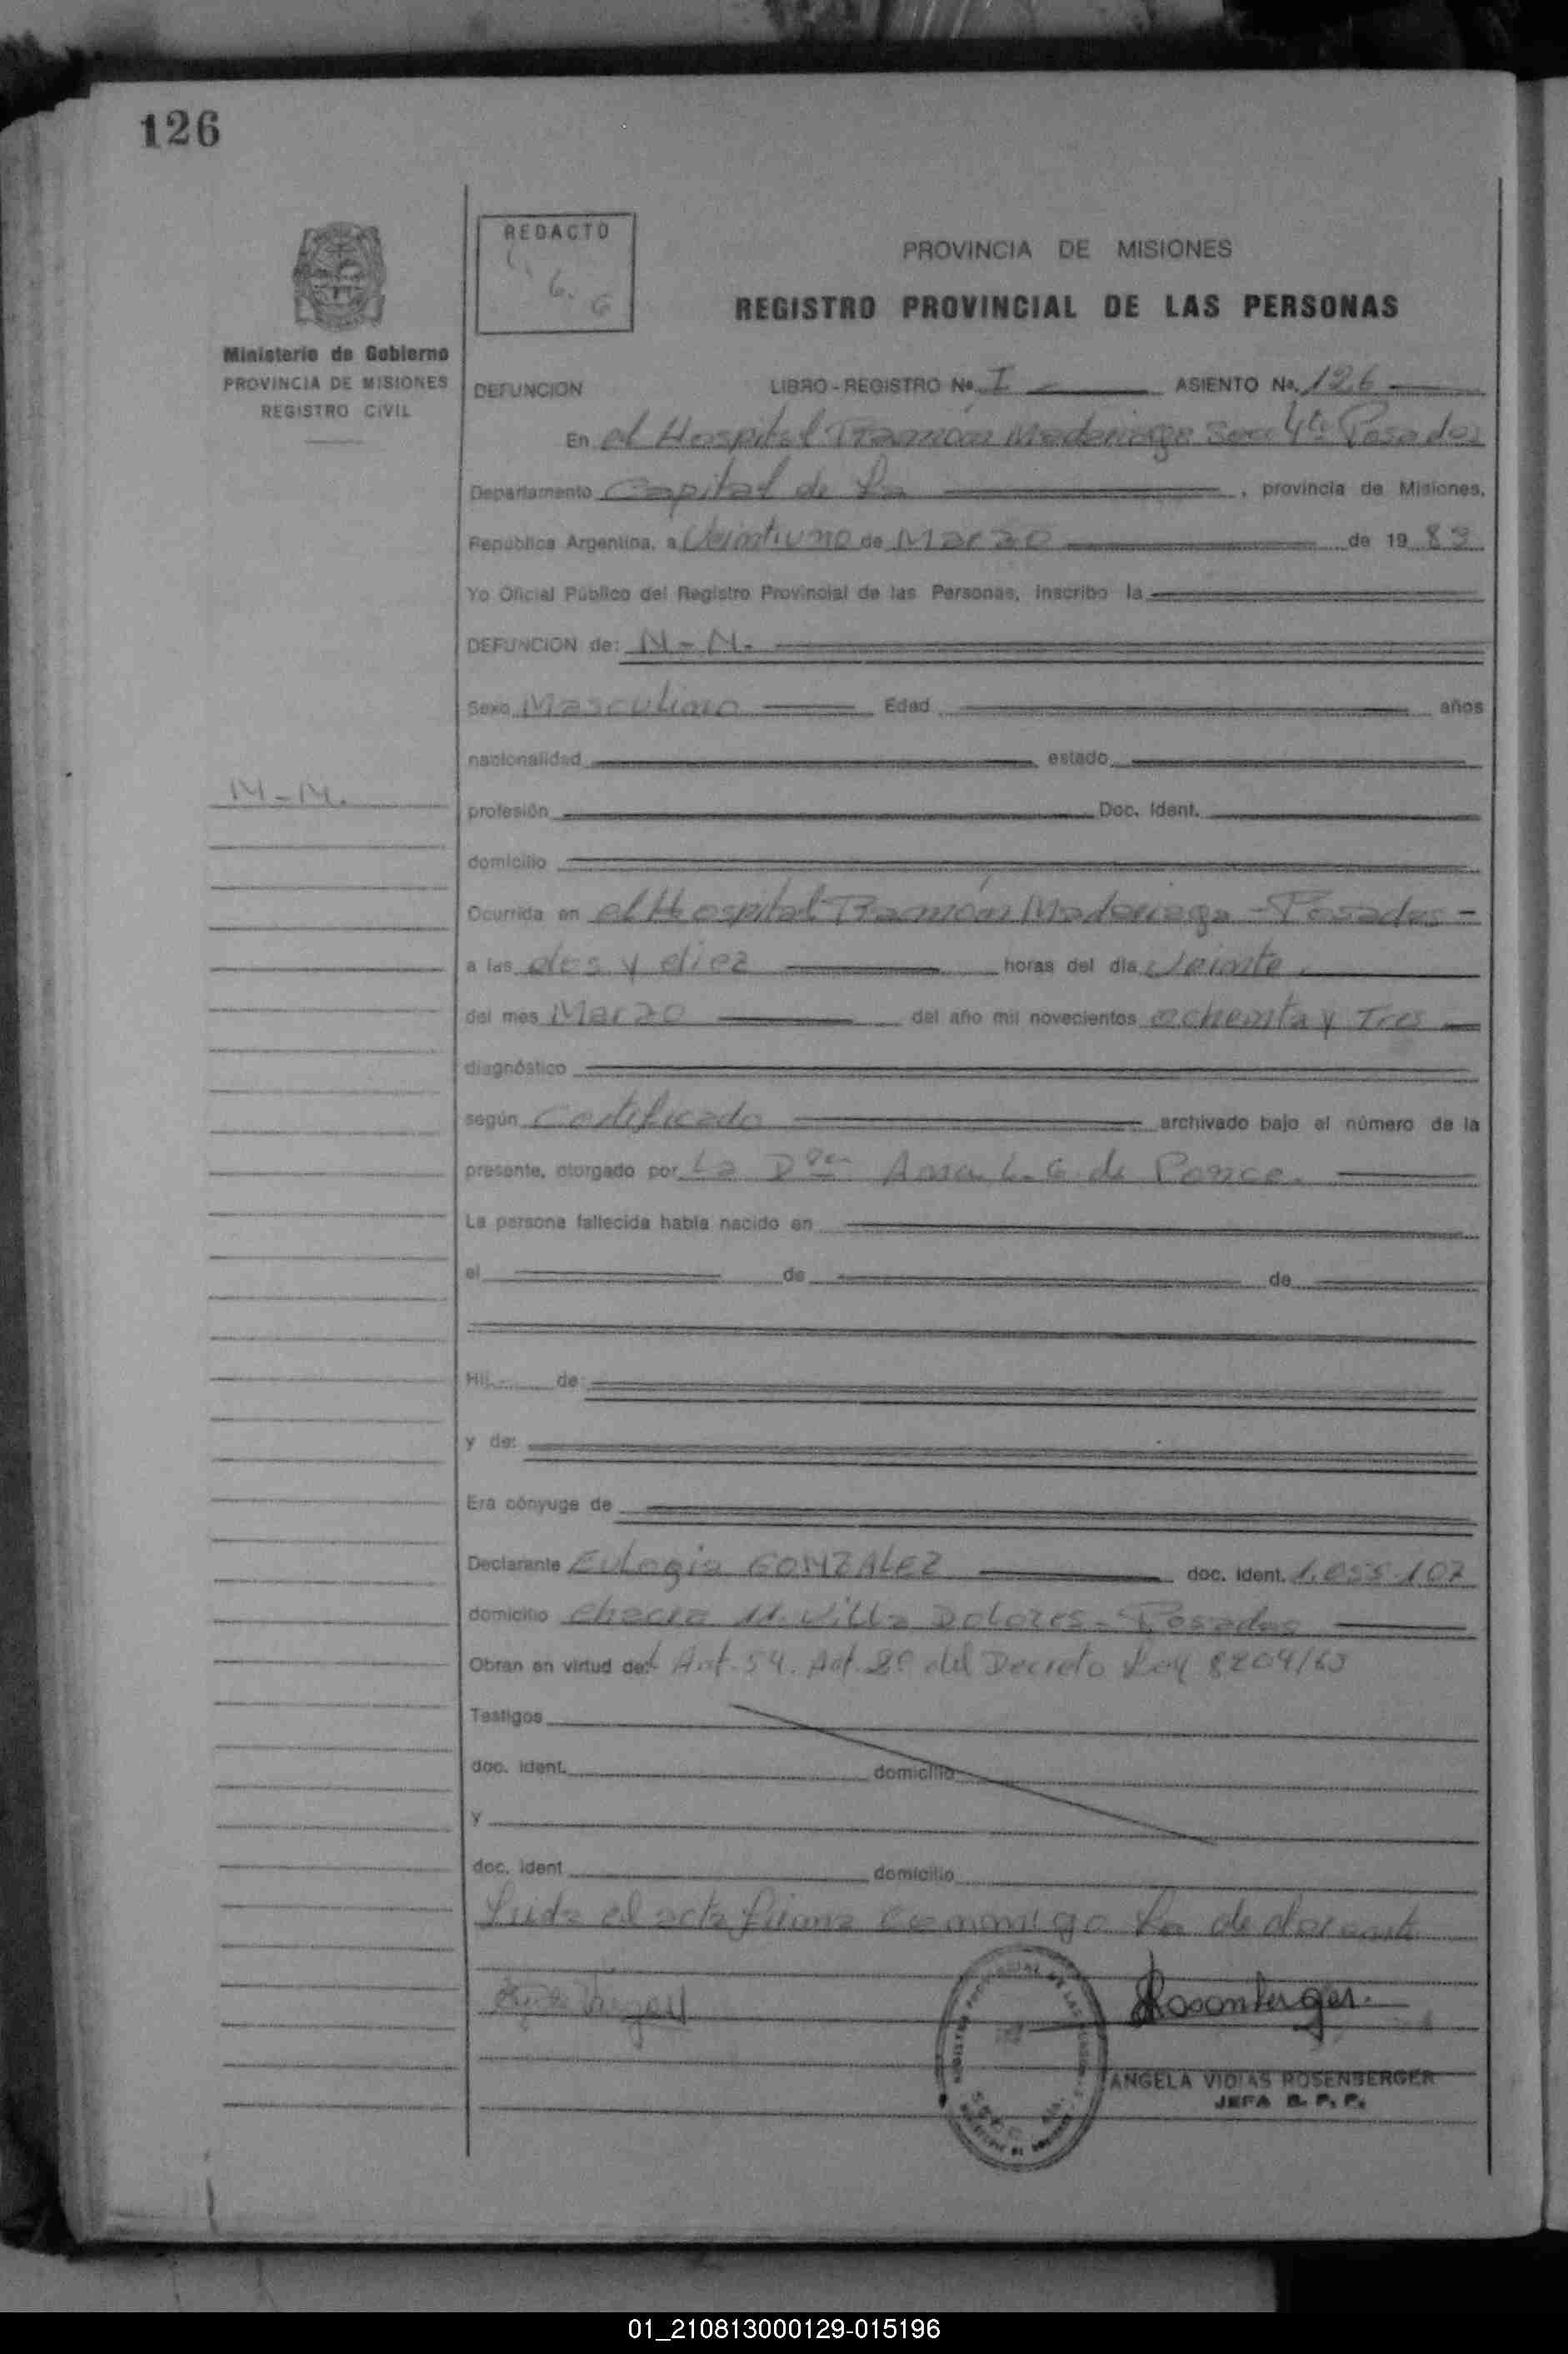 126
REDACTO
6. G
PROVINCIA DE MISIONES
REGISTRO PROVINCIAL DE LAS PERSONAS
Ministerio de Gobierno
PROVINCIA DE MISIONES
REGISTRO CIVIL
DEFUNCION LIBRO - REGISTRO Nº. I ASIENTO Nº. 126
En el Hospital Ramón Madariaga Sec. 4ta Posadas
Departamento Capital de La , provincia de Misiones,
República Argentina, a Veintiuno de Marzo de 19 83
Yo Oficial Público del Registro Provincial de las Personas, inscribo la
DEFUNCION de: N - N.
Sexo Masculino Edad años
nacionalidad estado
N - N.
profesión Doc. Ident.
domicilio
Ocurrida en el Hospital Ramón Madariaga - Posadas -
a las dos y diez horas del día Veinte
del mes Marzo del año mil novecientos ochenta y Tres
diagnóstico
según Certificado archivado bajo el número de la
presente, otorgado por La Dra Ana L. G. de Ponce.
La persona fallecida había nacido en
el de de
Hij de
y de:
Era cónyuge de
Declarante Eulogia GONZALEZ doc. ident. 1.055.107
domicilio chacra 11. Villa Dolores - Posadas
Obran en virtud del Art. 54. Del Decreto Ley 8204/63
Testigos
doc. ident. domicilio
y
doc. ident domicilio
Leida el acta firma conmigo La declarante
Rosenberger.
ANGELA VIDIAS ROSENBERGER
JEFA R. P. P.
01_210813000129-015196